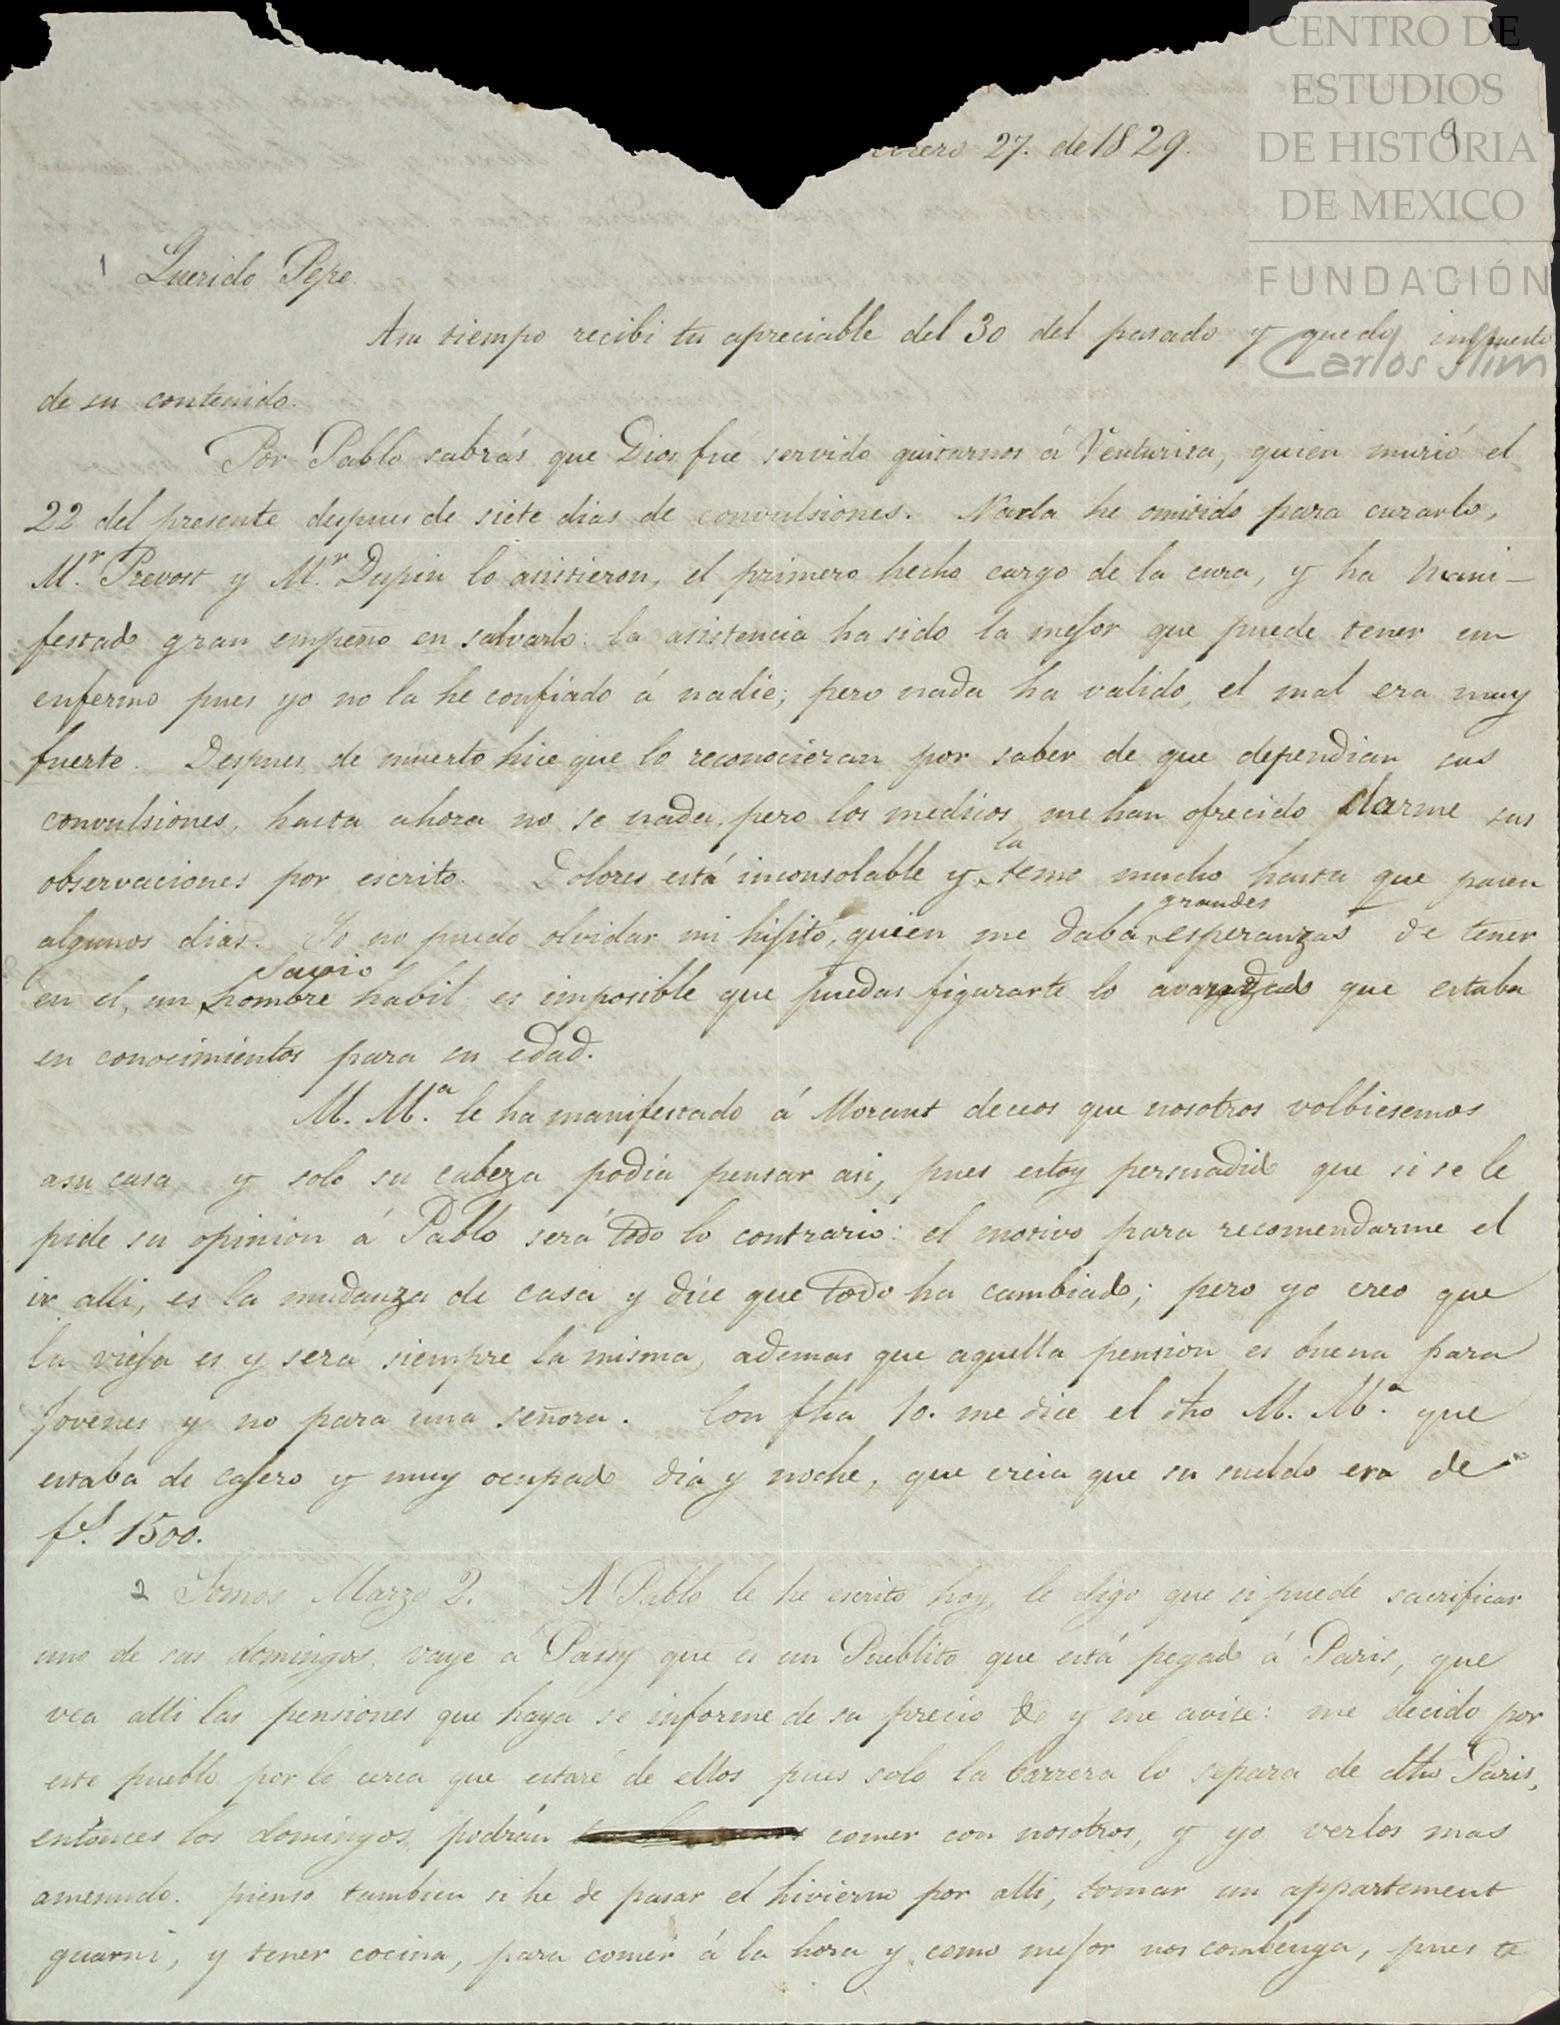 CENTRO DE
ESTUDIOS
DE HISTORIA
DE MEXICO
FUNDACIÓN
Carlos Slim
9
27. de 1829.
1 Querido Pepe
Asu tiempo recibi tu apreciable del 30 del pasado y quedo impuesto
de su contenido.
Por Pablo sabrás que Dios fué servido quitarnos á Venturita, quien murió el
22 del presente despues de siete dias de convulsiones. Nada he omitido para curarlo,
M.r Prevost y M.r Dupin lo asistieron, el primero hecho cargo de la cura, y ha mani-
festado gran empeño en salvarlo: la asistencia ha sido la mejor que puede tener un
enfermo pues yo no la he confiado á nadie; pero nada ha valido, el mal era muy
fuerte. Despues de muerto hice que lo reconocieran por saber de que dependian sus
convulsiones, hasta ahora no se nada, pero los medicos me han ofrecido darme sus
observaciones por escrito. Dolores está inconsolable y la temo mucho hasta que pasen
algunos dias. Yo no puedo olvidar mi hijito, quien me daba grandes esperanzas de tener
en el, un savio hombre habil es imposible que puedas figurarte lo avanzado que estaba
en conocimientos para su edad.
M. M.a le ha manifestado á Morant deceos que nosotros volbiesemos
asu casa y solo su cabeza podia pensar asi, pues estoy persuadido que si se le
pide su opinion á Pablo será todo lo contrario: el motivo para recomendarme el
ir alli, es la mudanza de casa y dice que todo ha cambiado; pero yo creo que
la vieja es y será siempre la misma, ademas que aquella pension es buena para
Jovenes y no para una señora. Con fha 10. me dice el dho M. M.a que
estaba de cajero y muy ocupado dia y noche, que creia que su sueldo era de
f.s 1500.
2 Somos Marzo 2. A Pablo le he escrito hoy, le digo que si puede sacrificar
uno de sus domingos, vaye á Passy que es un Pueblito que está pegado á Paris, que
vea alli las pensiones que haya se informe de su precio &c y me avise: me decido por
este pueblo por lo cerca que estaré de ellos pues solo la barrera lo separa de dho Paris,
entonces los domingos podrán comer con nosotros, y yo verlos mas
amenudo. pienso tambien si he de pasar el hivierno por alli, tomar un appartement
guarni, y tener cocina, para comer á la hora y como mejor nos combenga, pues te